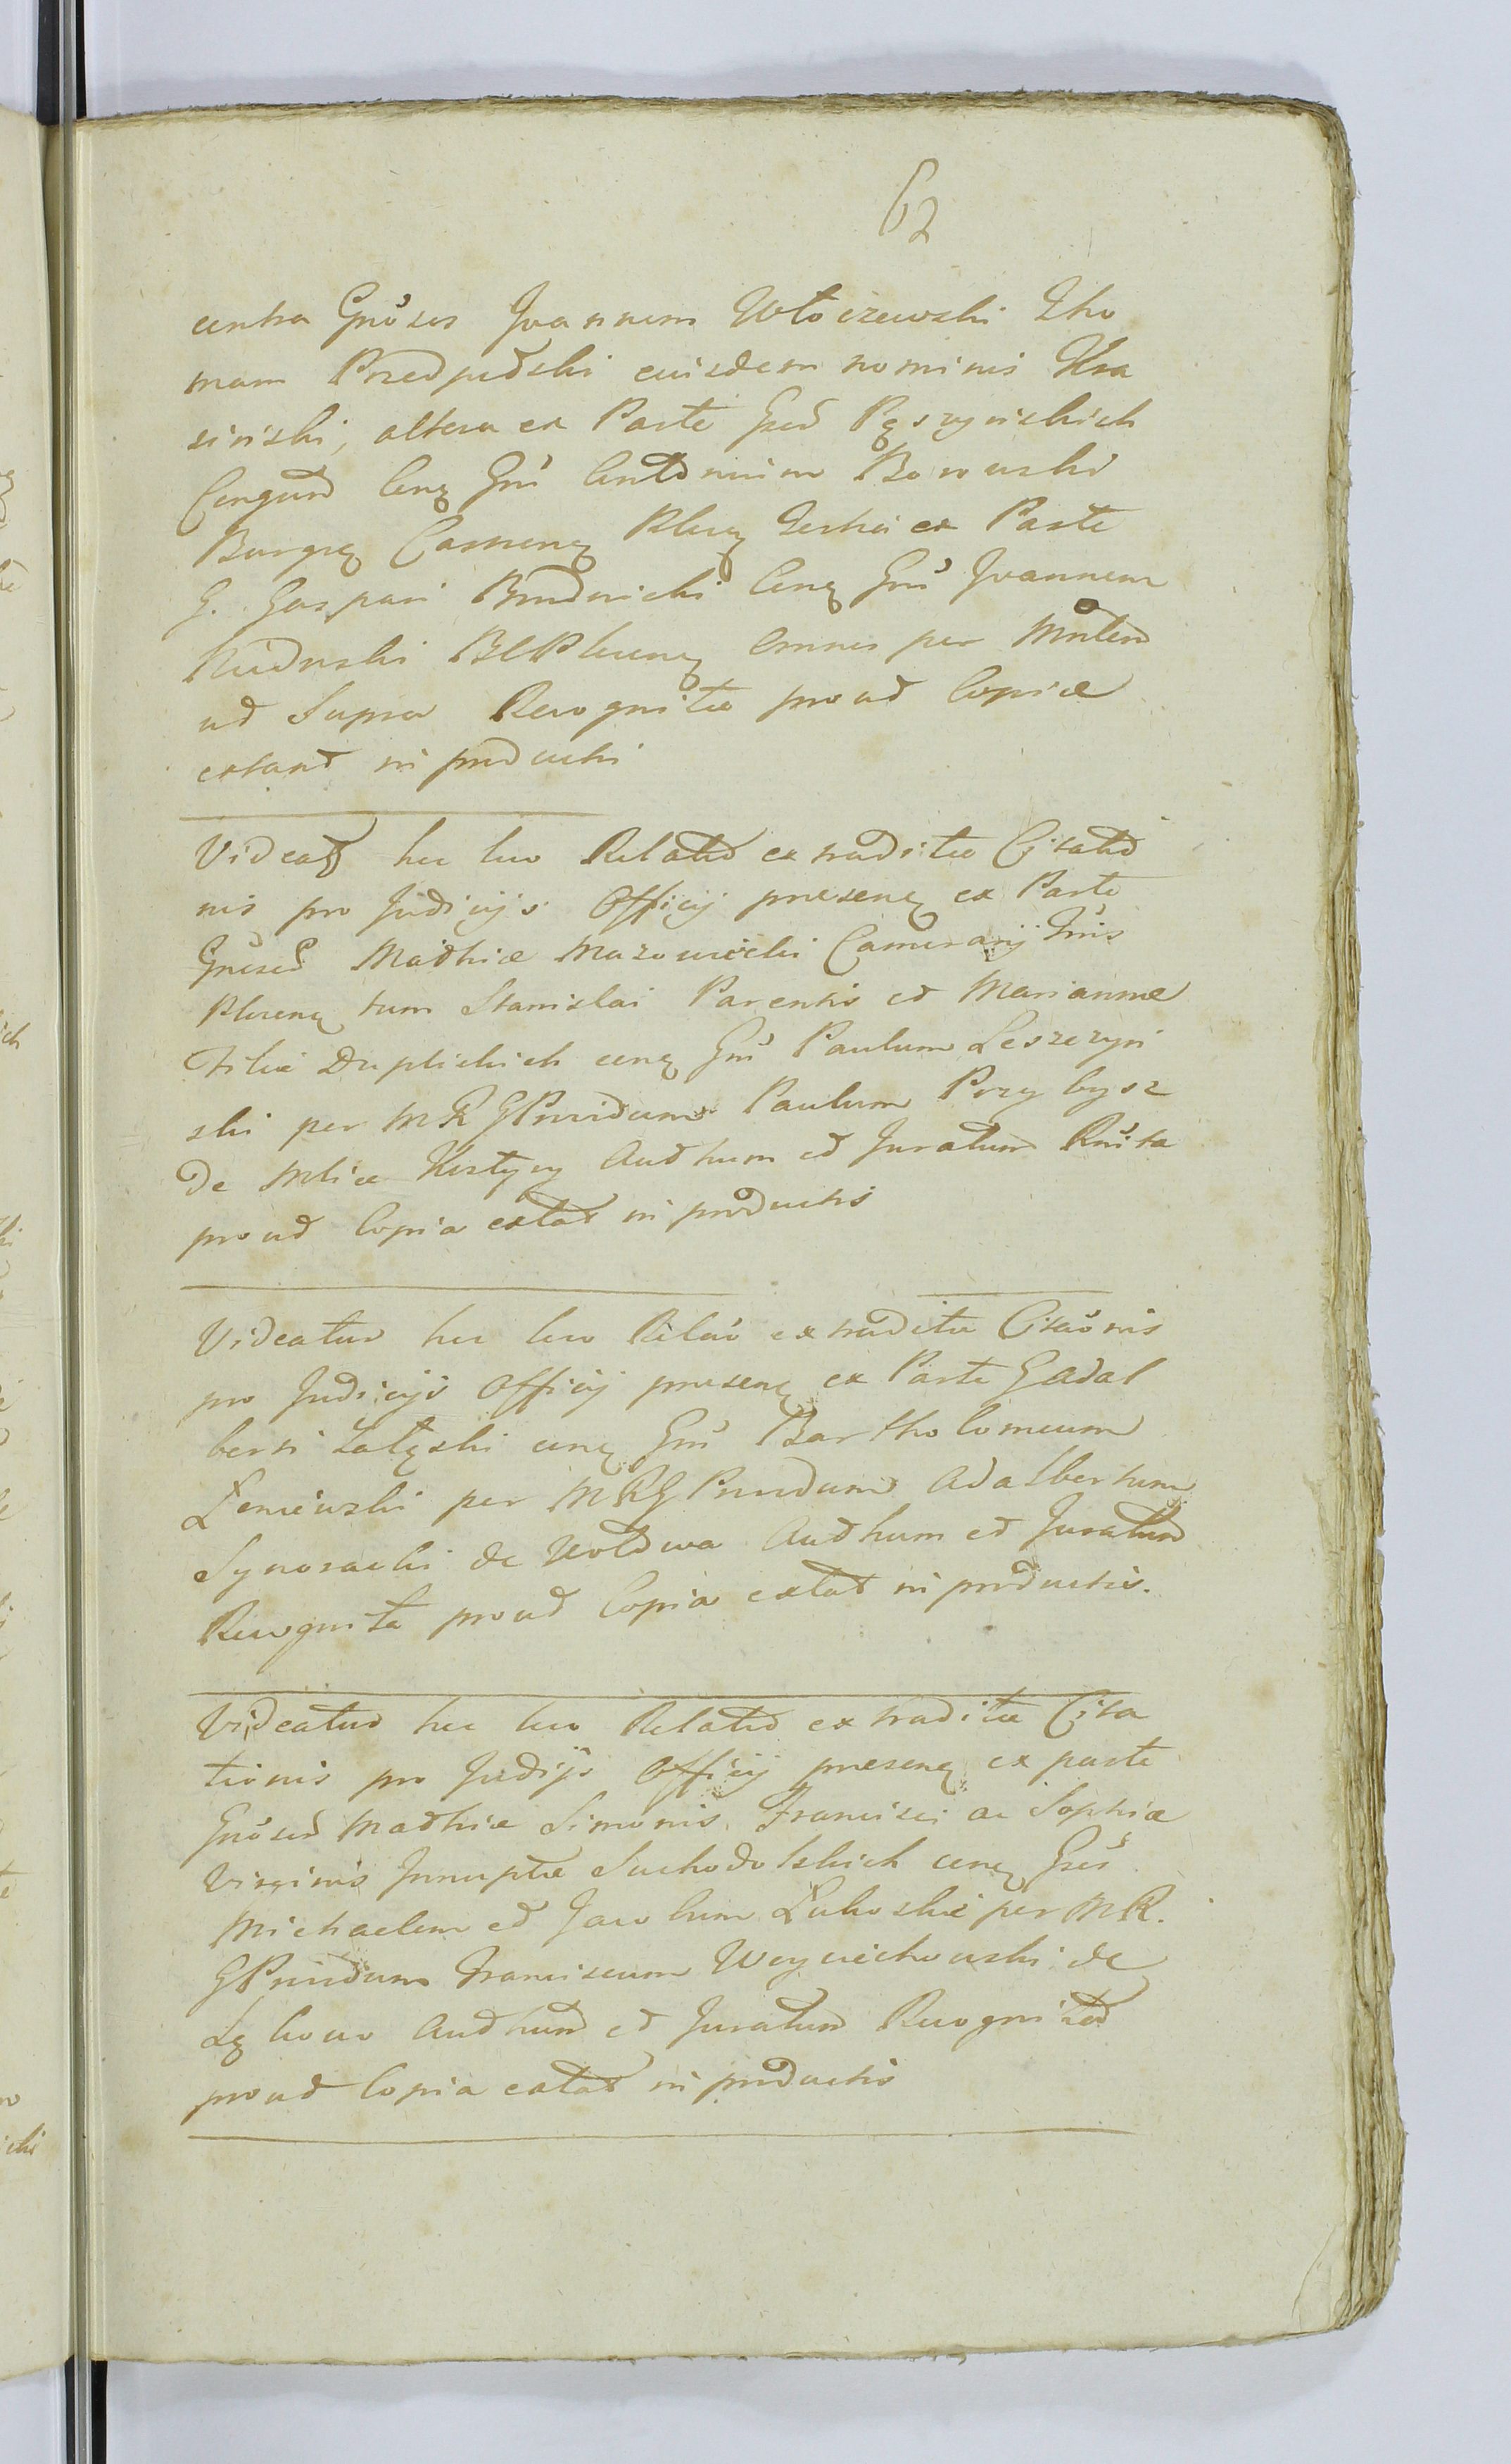 62
contra Gnosos Joannem Włoczewski Tho
mam Przedpełski eiusdem nominis Kra
sinski, altera ex Parte Gred Pęszynskich
Cengund Cenq Gm Antonium Borowski
Burgrę Camenę Plocę Tertia ex Parte
G. Gaspari Brudnicki Cenq Gm Joannem
Rudnski BCPlocenę Omnes per Mnlem
ud Supra Recognitae proud Copiae
extant in productis
Videatr hic loco Relatio extraditae Citatio
nis pro Judicijs Officij praesenę ex Parte
Gnosed Mathiae Mazowiecki Camerarij Tris
Plocenę tum Stanislai Parentis et Mariannae
Filiae Duplickich cenę Gm Paulum Leszczyn
ski per MRGPruidum Paulum Przybysz
de Mlice Kostycy Authum et Juratum Rnita
proud Copia extat in productis
Videatur hic loco Relao extraditae Citaonis
pro Judicijs Officij praesenę ex Parte G Adal
berti Załęski cenę Gm Bartholomeum
Leniewski per MRG Pruidum Adalbertum
Synoracki de Uoldwa Authum et Juratum
Recognita proud Copia extat in productis.
Videatur hic loco Relatio extraditae Cita
tionis pro Judijs Officij praesenę ex parte
Gnosed Mathiae Simonis Francisci ac Sophiae
Virginis Innuptae Suchodolskich cenę Gres
Michaelem et Jacobum Lukoskie per MR.
GPruidum Franciscum Woyciechowski de
Lę howo Authum et Juratum Recognitad
proud Copia extat in productis